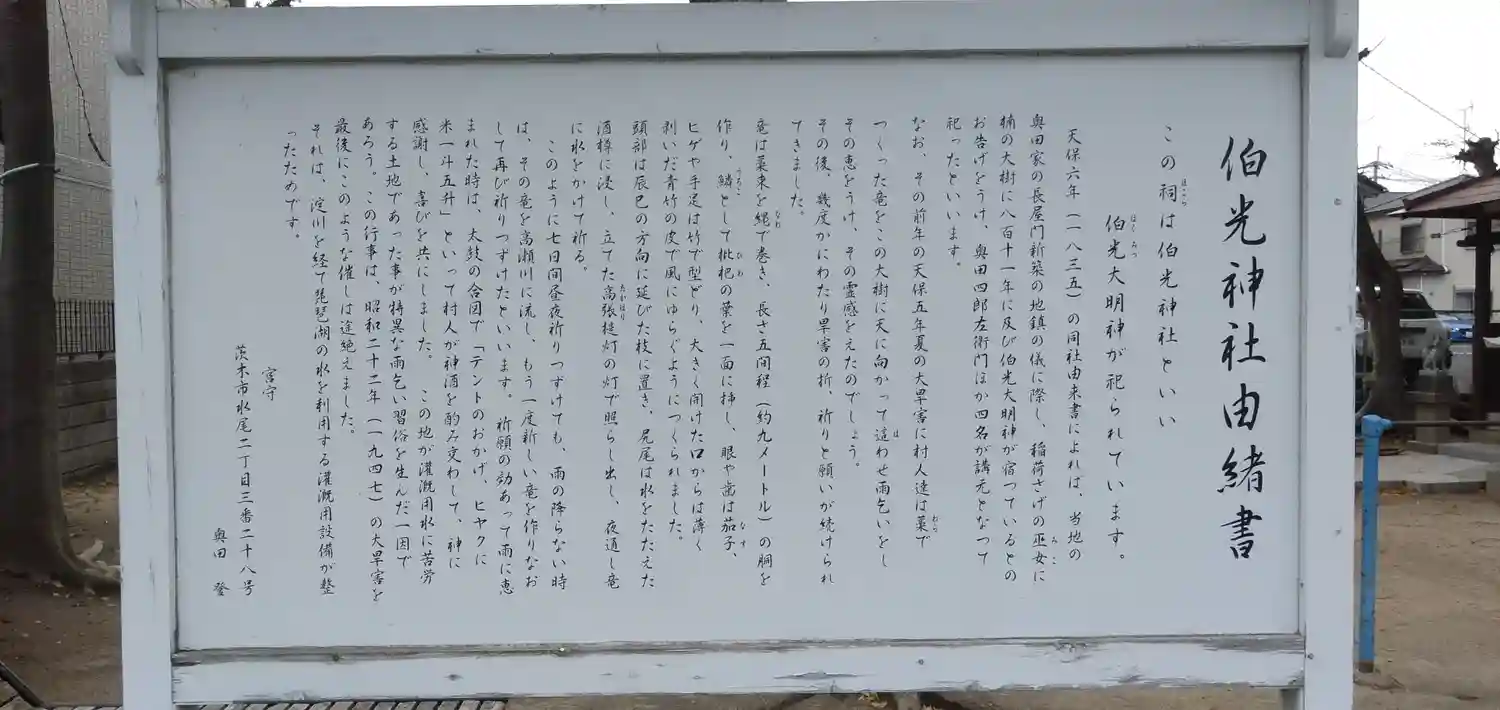 伯光神社由緒書
この祠は伯光神社といい
伯光大明神が祀られています。
天保六年(一八三五)の同社由来書によれば、当地の
奥田家の長屋門新築の地鎮の儀に際し、稲荷さげの巫女に
楠の大樹に八百十一年に及び伯光大明神が宿っているとの
お告げをうけ、奥田四郎左衛門ほか四名が講元となって
祀ったといいます。
なお、その前年の天保五年夏の大旱害に村人達は藁で
つくった竜をこの大樹に天に向かって這わせ雨乞いをし
その恵をうけ、その霊感をえたのでしょう。
その後、幾度かにわたり旱害の折、祈りと願いが続けられ
てきました。
竜は藁束を縄で巻き、長さ五間程(約九メートル)の胴を
作り、鱗として枇杷の葉を一面に挿し、眼や歯は茄子、
ヒゲや手足は竹で型どり、大きく開けた口からは薄く
剥いだ青竹の皮で風にゆらぐようにつくられました。
頭部は辰巳の方向に延びた枝に置き、尻尾は水をたたえた
酒樽に浸し、立てた高張提灯の灯で照らし出し、夜通し竜
に水をかけて祈る。
このように七日間昼夜祈りつずけても、雨の降らない時
は、その竜を高瀬川に流し、もう一度新しい竜を作りなお
して再び祈りつずけたといいます。祈願の効あって雨に恵
まれた時は、太鼓の合図で「テントのおかげ、ヒヤクに
米一斗五升」といって村人が神酒を酌み交わして、神に
感謝し、喜びを共にしました。 この地が灌漑用水に苦労
する土地であった事が特異な雨乞い習俗を生んだ一因で
あろう。この行事は、昭和二十二年(一九四七)の大旱害を
最後にこのような催しは途絶えました。
それは、淀川を経て琵琶湖の水を利用する灌漑用設備が整
ったためです。
宮守
茨木市水尾二丁目三番二十八号
奥田 登